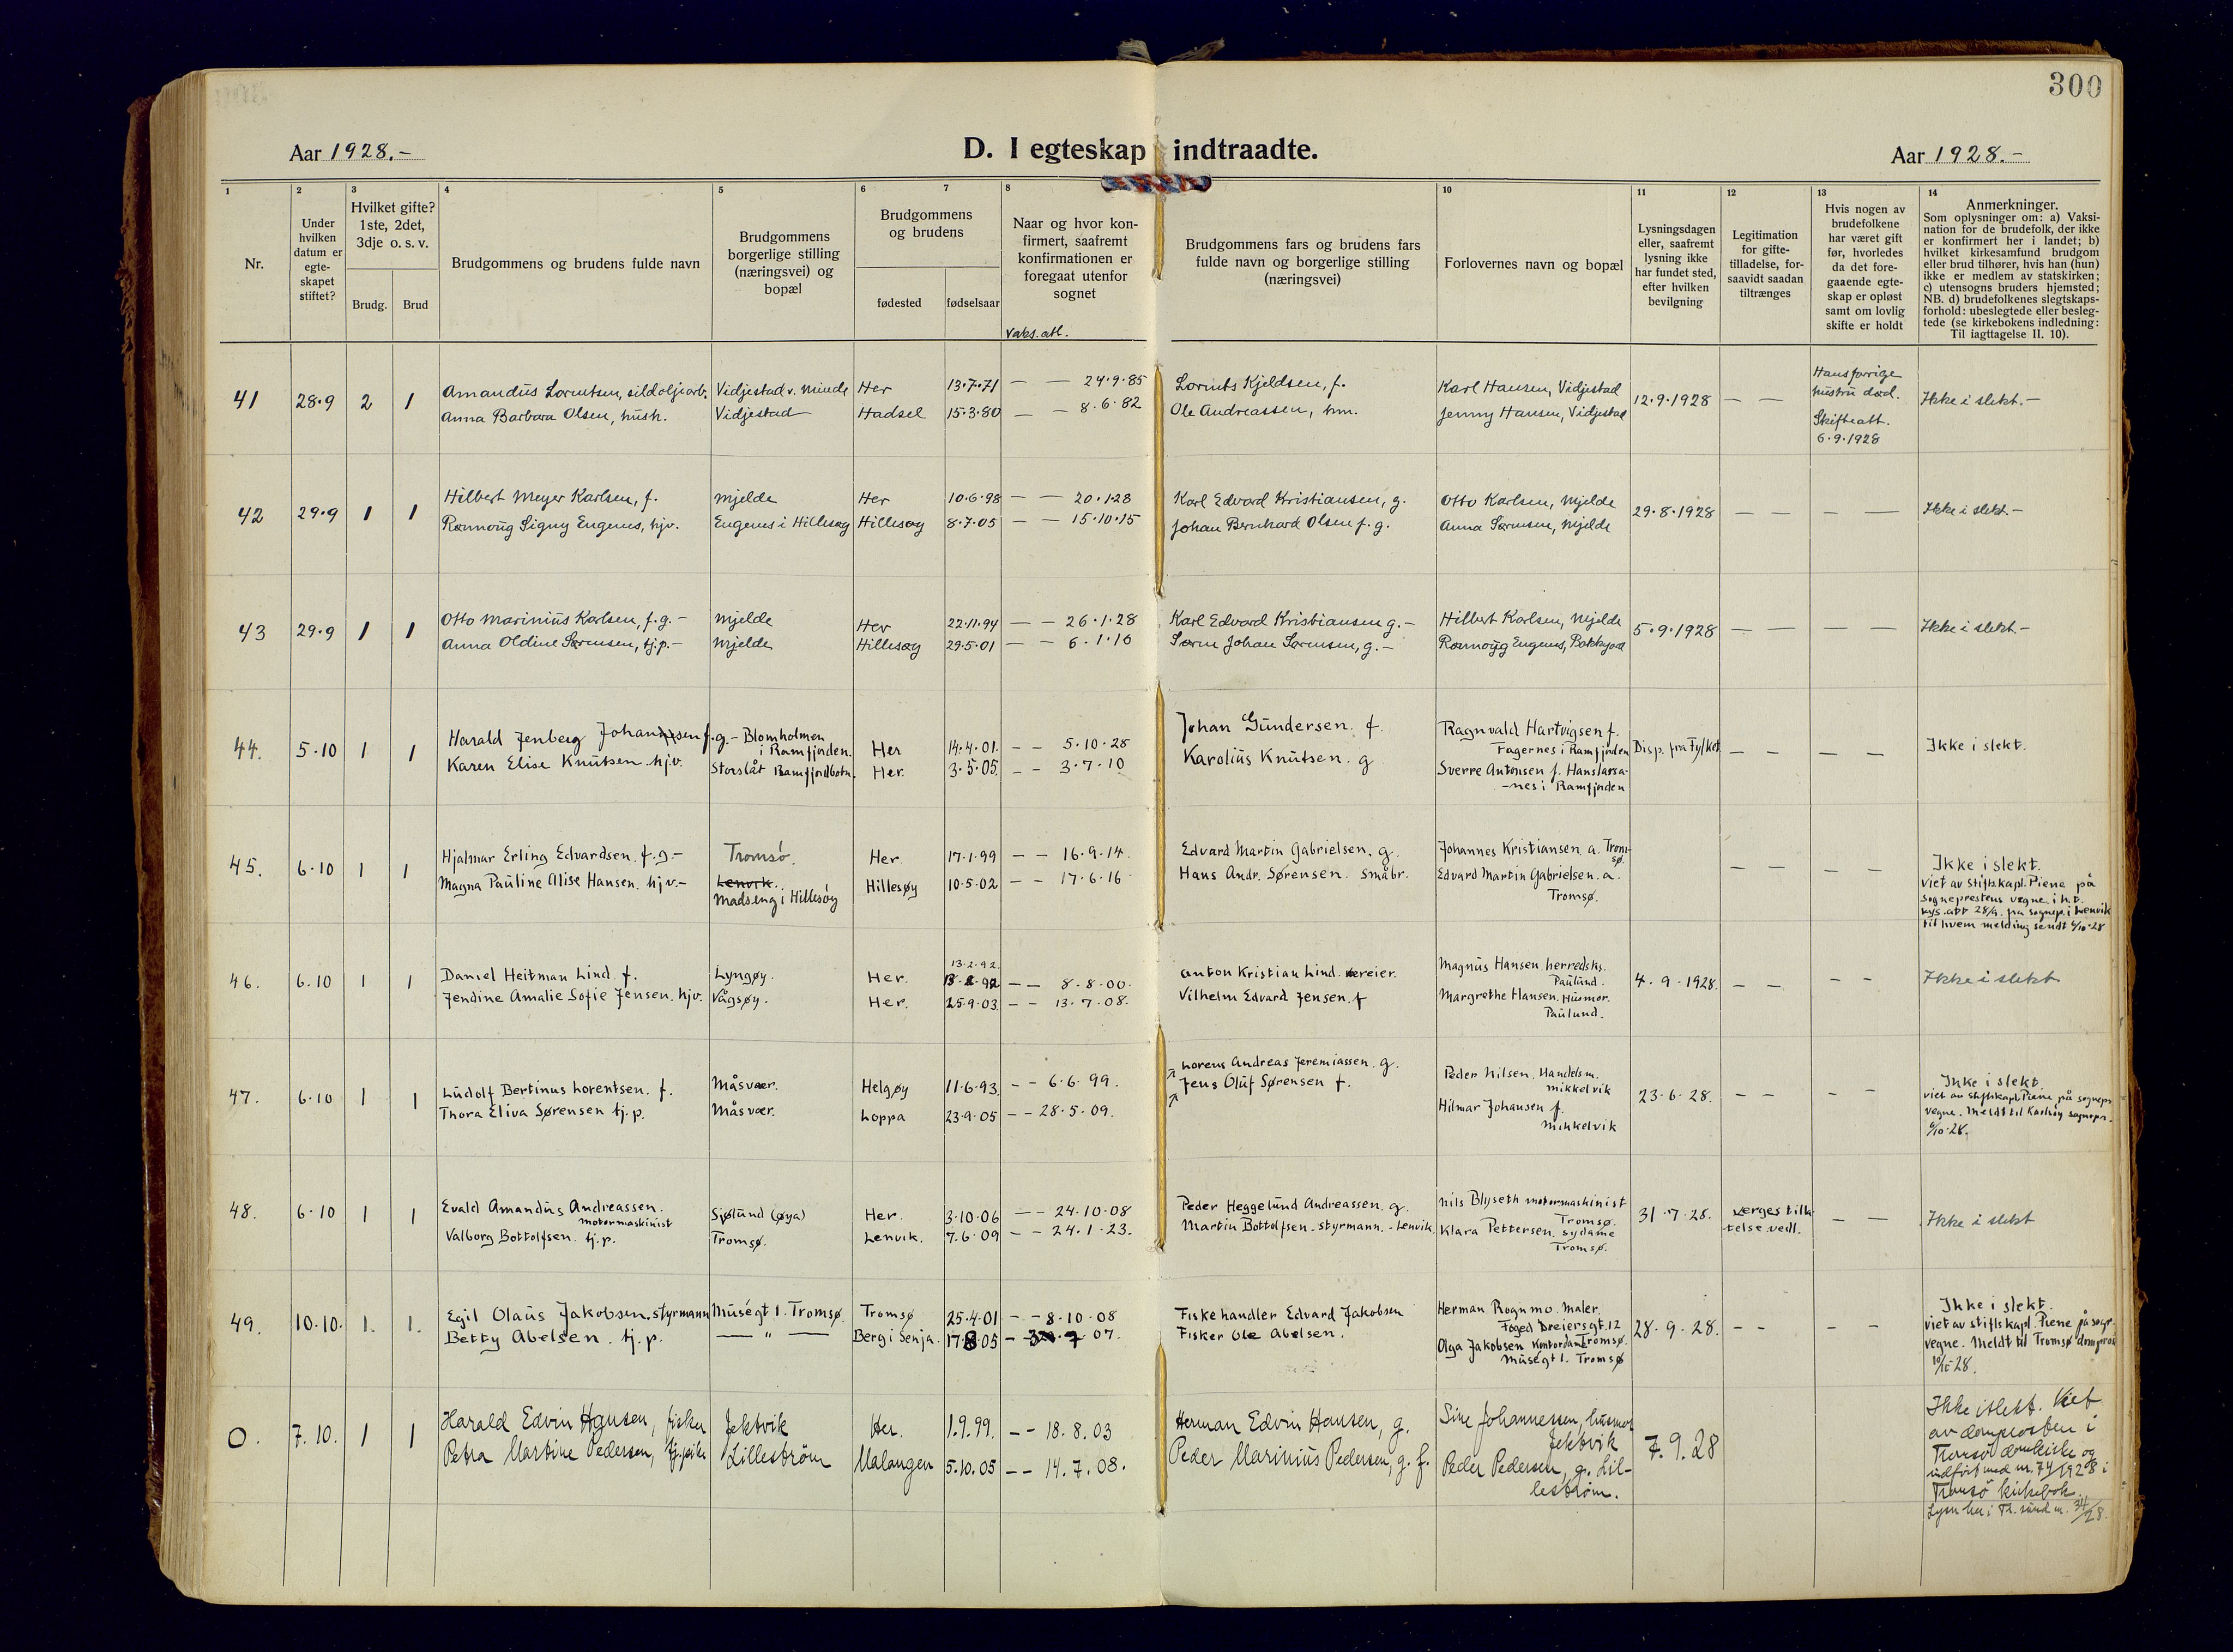 300
Aar 1928.-
D. I egteskap indtraadte.
Aar 1928.-
1
2
3
4
5
6
7
8
10
11
12
13
14
Nr.
Under hvilken datum er egte-skapet stiftet?
Hvilket gifte? 1ste, 2det, 3dje o. s. v.
Brudg.
Brud
Brudgommens og brudens fulde navn
Brudgommens borgerlige stilling (næringsvei) og bopæl
Brudgommens og brudens
fødested
fødselsaar
Naar og hvor kon-firmert, saafremt konfirmationen er foregaat utenfor sognet
Vaks.att.
Brudgommens fars og brudens fars fulde navn og borgerlige stilling (næringsvei)
Forlovernes navn og bopæl
Lysningsdagen eller, saafremt lysning ikke har fundet sted, efter hvilken bevilgning
Legitimation for gifte-tilladelse, for-saavidt saadan tiltrænges
Hvis nogen av brudefolkene har været gift før, hvorledes da det fore-gaaende egte-skap er opløst samt om lovlig skifte er holdt
Anmerkninger.
Som oplysninger om: a) Vaksi-nation for de brudefolk, der ikke er konfirmert her i landet; b) hvilket kirkesamfund brudgom eller brud tilhører, hvis han (hun) ikke er medlem av statskirken; c) utensogns bruders hjemsted; NB. d) brudefolkenes slegtskaps-forhold: ubeslegtede eller besleg-tede (se kirkebokens indledning: Til iagttagelse II. 10).
41 28.9 2 1 Amandus Lorentsen, sildoljearb. Vidjestad v. Minde Her 13.7.71 — — 24.9.85 Lorents Kjeldsen, f. Karl Hansen, Vidjestad 12.9.1928 — — Hans forrige hustru død. Skifteatt. 6.9.1928 Ikke i slekt.-
Anna Barbara Olsen, hush. Vidjestad Hadsel 15.3.80 — — 8.6.82 Ole Andreassen, hm. Jenny Hansen, Vidjestad
42 29.9 1 1 Hilbert Meyer Karlsen, f. Mjelde Her 10.6.98 — — 20.1.28 Karl Edvard Kristiansen, g. Otto Karlsen, Mjelde 29.8.1928 — — — — Ikke i slekt.-
Rønnoug Signy Eugenes, hjv. Eugenes i Hillesøy Hillesøy 8.7.05 — — 15.10.15 Johan Bernhard Olsen f. g. Anna Sørensen, Mjelde
43 29.9 1 1 Otto Marinius Karlsen, f.g. - Mjelde Her 22.11.94 — — 26.1.28 Karl Edvard Kristiansen g. - Hilbert Karlsen, Mjelde 5.9.1928 — — — — Ikke i slekt.-
Anna Oldine Sørensen, tj.p. - Mjelde Hillesøy 29.5.01 — — 6.1.10 Søren Johan Sørensen, g. - Rønnoug Eugenes, Bakkejord
44. 5.10 1 1 Harald Jenberg Johansen f.g. - Blomholmen i Ramfjorden. Her 14.4.01. — — 5.10.28 Johan Gundersen. f Ragnvald Hartvigsen f. Fagernes i Ramfjorden Disp. fra Fylket — — — — Ikke i slekt.
Karen Elise Knutsen. hjv. Storslåt Ramfjordbotn. Her. 3.5.05. — — 3.7.10 Karolius Knutsen. g Sverre Antonsen f. Hanslarsa-
-nes i Ramfjorden
45. 6.10 1 1 Hjalmar Erling Edvardsen. f.g. - Tromsø. Her. 17.1.99 — — 16.9.14. Edvard Martin Gabrielsen. g. Johannes Kristiansen a. Trom-sø. — — — — Ikke i slekt.
Magna Pauline Alise Hansen. hjv. - Lenvik. Madseng i Hillesøy Hillesøy 10.5.02 — — 17.6.16 Hans Andr. Sørensen. småbr. Edvard Martin Gabrielsen. a. Tromsø.
viet av Stiftskapl. Piene på
sogneprestens vegne. i h.t.
lys.att 28/9. fra sognep. i Lenvik
til hvem melding sendt 6/10-28
46. 6.10 1 1 Daniel Heitman Lind. f. Lyngøy. Her. 13.2.92. 13.2.92 — — 8.8.00. Anton Kristian Lind. væreier. Magnus Hansen. herredsks. Paulund. 4.9.1928. — — — — Ikke i slekt
Jendine Amalie Sofie Jensen. hjv. Vågsøy. Her. 25.9.03. — — 13.7.08. Vilhelm Edvard Jensen. f Margrethe Hansen. Husmor. Paulund.
47. 6.10 1 1 Ludolf Bertinus Lorentsen. f. Måsvær. Helgøy 11.6.93. — — 6.6.99. Lorens Andreas Jeremiassen. g. Peder Nilsen. Handelsm. Mikkelvik 23.6.28. — — — — Ikke i slekt.
Thora Eliva Sørensen tj.p. Måsvær. Loppa 23.9.05 — — 28.5.09. Jens Oluf Sørensen f. Hilmar Johansen f. Mikkelvik
viet av stiftskapl. Piene på sognepr.
vegne. Meldt til Karlsøy sognepr.
6/10-28.
48. 6.10 1 1 Evald Amandus Andreassen. motormaskinist Sjølund (øya) Her. 3.10.06 — — 24.10.08 Peder Heggelund Andreassen. g. Nils Blyseth motormaskinist Tromsø. 31.7.28. Verges tilla-telse vedl. — — Ikke i slekt
Valborg Bottolfsen. tj.p. Tromsø. Lenvik. 7.6.09 — — 24.1.23. Martin Bottolfsen. styrmann. - Lenvik. Klara Pettersen. sydame Tromsø.
49. 10.10. 1. 1. Egil Olaus Jakobsen. styrmann Muségt 1. Tromsø. Tromsø 25.4.01 — — 8.10.08 Fiskehandler Edvard Jakobsen Herman Rognmo. Maler. Foged Dreiersgt. 12 Tromsø. 28.9.28. — — — — Ikke i slekt.
Betty Abelsen. tj.p. — " — Berg i Senja. 17.8.05 — 7.07. Fisker Ole Abelsen. Olga Jakobsen Kontordame Muségt 1. Tromsø
viet av stiftskapl. Piene på sogr.
vegne. Meldt til Tromsø domprost
10/10-28.
0. 7.10. 1 1 Harald Edvin Hansen, fisker Jektvik Her. 1.9.99. — — 18.8.03 Herman Edvin Hansen, g. Sine Johannessen, husmor Jektvik 7.9.28 Ikke i slekt. Viet
Petra Martine Pedersen, tj.pike Lillestrøm Malangen 5.10.05 — — 14.7.08. Peder Marinius Pedersen, g. f. Peder Pedersen, g. Lil-lestrøm.
av domprosten i
Tromsø domkirke og
indført med nr. 74/1928 i
Tromsø kirkebok.
Lysn. her i Tr.sund nr. 34/28.